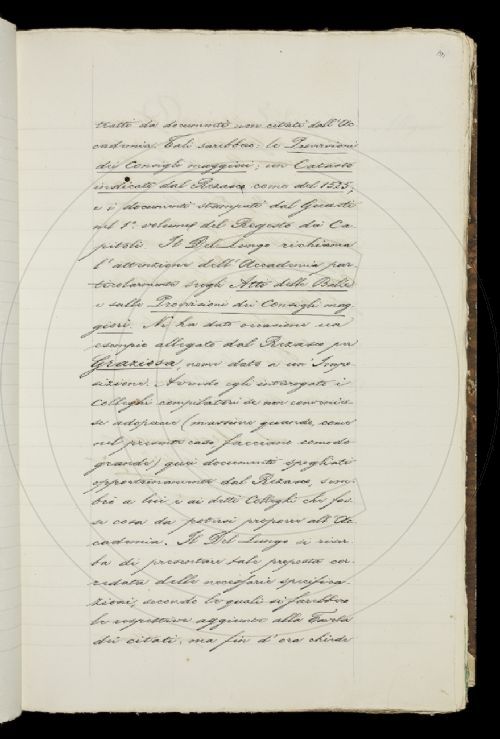 tratti da documenti non citati dall'Ac
cademia. Tali sarebbero: le Provvisioni
dei Consigli maggiori; un Catasto
indicato dal Rezasco come del 1525;
e i documenti stampati dal Guasti
nel 1º volume del Regesto dei Ca
pitoli. Il Del Lungo richiama
l'attenzione dell'Accademia par
ticolarmente sugli Atti della Balìa
e sulle Provvisioni dei Consigli mag
giori. Ne ha dato occasione un
esempio allegato dal Rezasco per
Graziosa, nome dato a un'Impo
sizione. Avendo egli interrogato i
Colleghi compilatori se non convenis
se adoprare (massime quando, come
nel presente caso, facciano comodo
grande) quei documenti spogliati
opportunamente dal Rezasco, sem
brò a lui e ai detti Colleghi che fos
se cosa da potersi proporre all'Ac
cademia. Il Del Lungo si riser
ba di presentare tale proposta cor
redata delle necessarie specifica
zioni, secondo le quali si farebbero
le rispettive aggiunte alla Tavola
dei citati, ma fin d'ora chiede